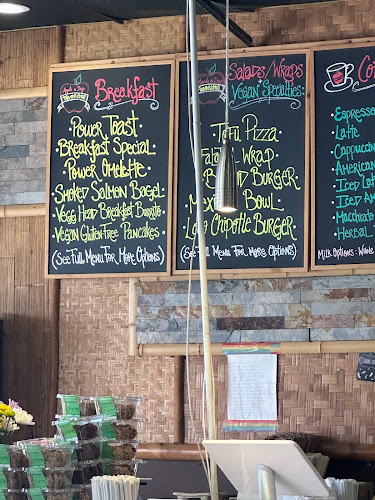 Breakfast
Power Toast
Breakfast Special
Power Omelette
Smoked Salmon Bagel
Vegg Head Breakfast Burrito
Vegan Gluten-free Pancakes
(See Full Menu For More Options)
Salads/Wraps
+
Vegan Specialties
Tofu Pizza
Wrap
Burger
Bowl
Chipotle Burger
(See Full Menu For More Options)
Espresso
Latte
Cappuccin
American
Iced Latt
Iced Am
Macchiato
Herbal
Milk Options: Whole